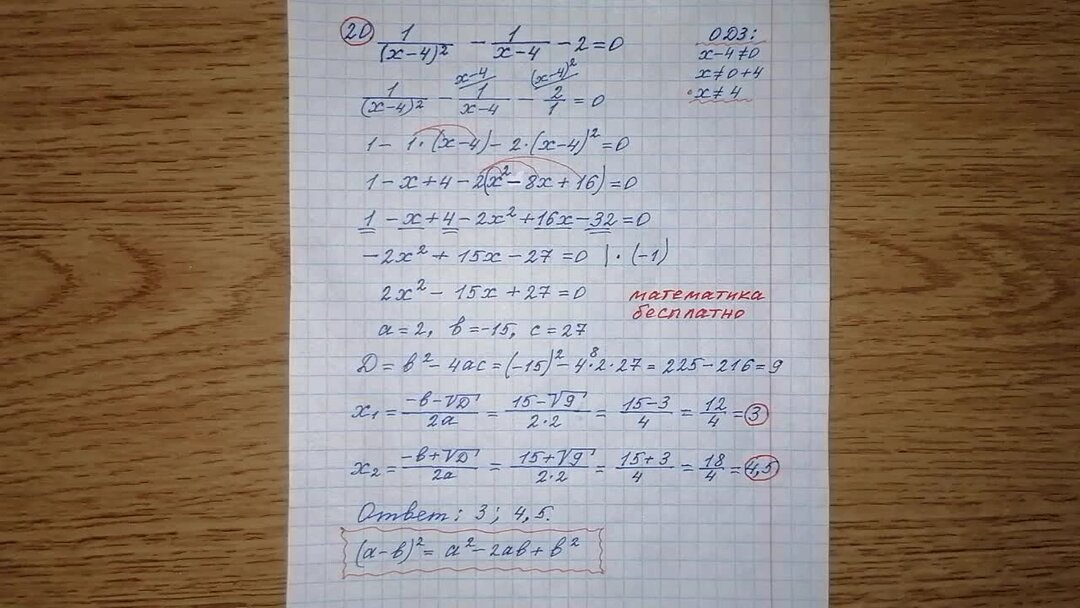 20) 1/(x-4)² - 1/(x-4) - 2 = 0
ОДЗ:
x-4≠0
x≠0+4
x≠4
1/(x-4)² - 1/(x-4) (x-4 - 2/1 (x-4)² = 0
1 - 1·(x-4) - 2·(x-4)² = 0
1 - x + 4 - 2(x² - 8x + 16) = 0
1 - x + 4 - 2x² + 16x - 32 = 0
-2x² + 15x - 27 = 0 |·(-1)
2x² - 15x + 27 = 0
математика
бесплатно
a = 2, b = -15, c = 27
D = b² - 4ac = (-15)² - 4·2·27 = 225 - 216 = 9
8
x₁ = (-b-√D)/2a = (15-√9)/2·2 = (15-3)/4 = 12/4 = 3
x₂ = (-b+√D)/2a = (15+√9)/2·2 = (15+3)/4 = 18/4 = 4,5
Ответ: 3; 4,5.
(a-b)² = a² - 2ab + b²